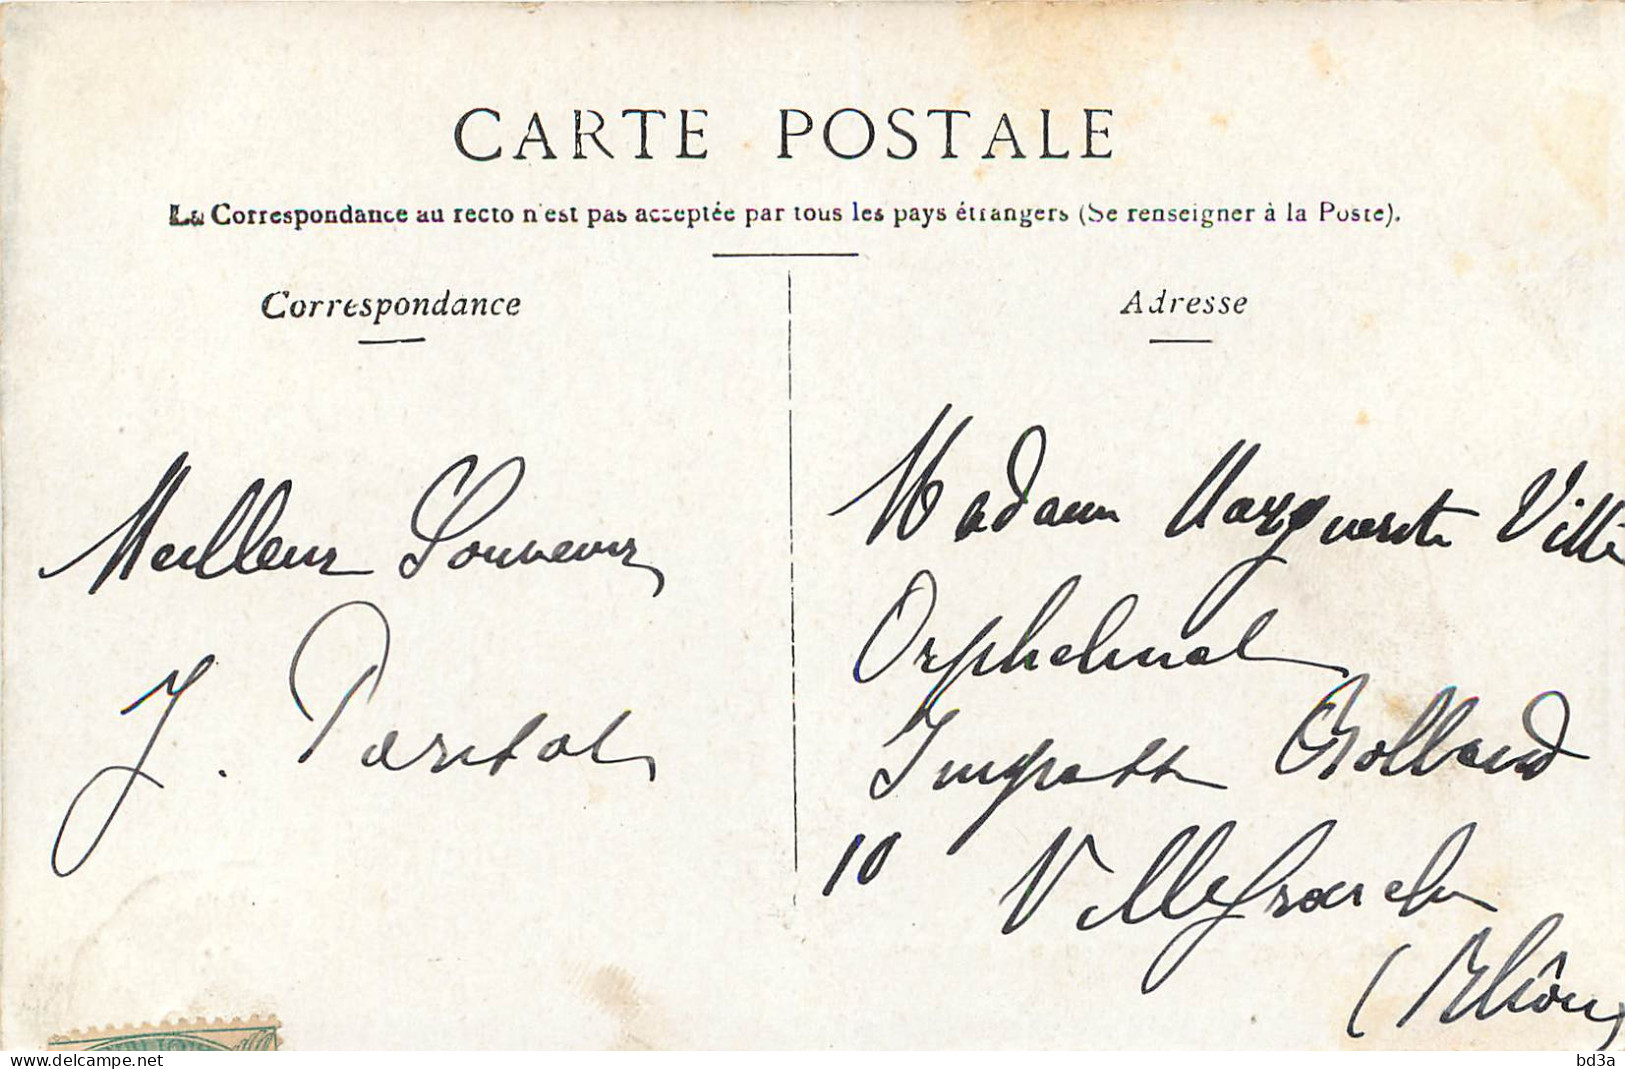 CARTE POSTALE
La Correspondance au recto n'est pas acceptée par tous les pays étrangers (Se renseigner à la Poste).
Correspondance
Adresse
Meilleur Souvenir
J.
Madame Marguerite Ville
Orphelinat
Impasse Rolland
10 Villefranche
(Rhône)
delcampe.net
bd3a